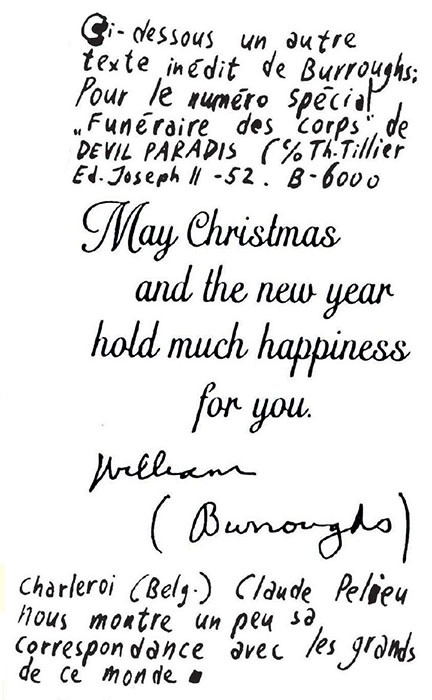 Ci-dessous un autre
texte inédit de Burroughs;
Pour le numéro spécial
„Funéraire des corps" de
DEVIL PARADIS (c/o Th. Tillier
Ed. Joseph II -52. B-6000
May Christmas
and the new year
hold much happiness
for you.
William
(Burroughs)
Charleroi (Belg.) Claude Pelieu
nous montre un peu sa
correspondance avec les grands
de ce monde.